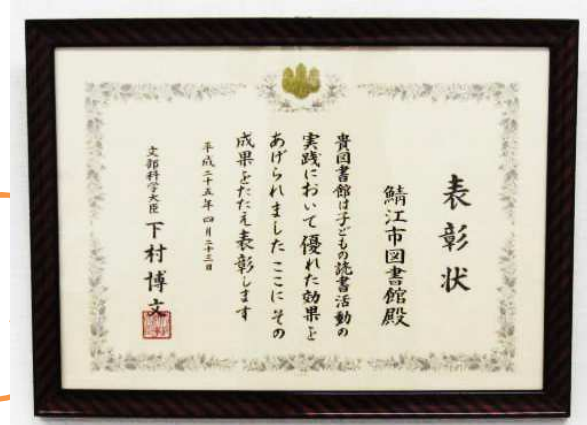 表彰状
鯖江市図書館殿
貴図書館は子どもの読書活動の
実践において優れた効果を
あげられました ここにその
成果をたたえ表彰します
平成二十五年四月二十三日
文部科学大臣 下村博文